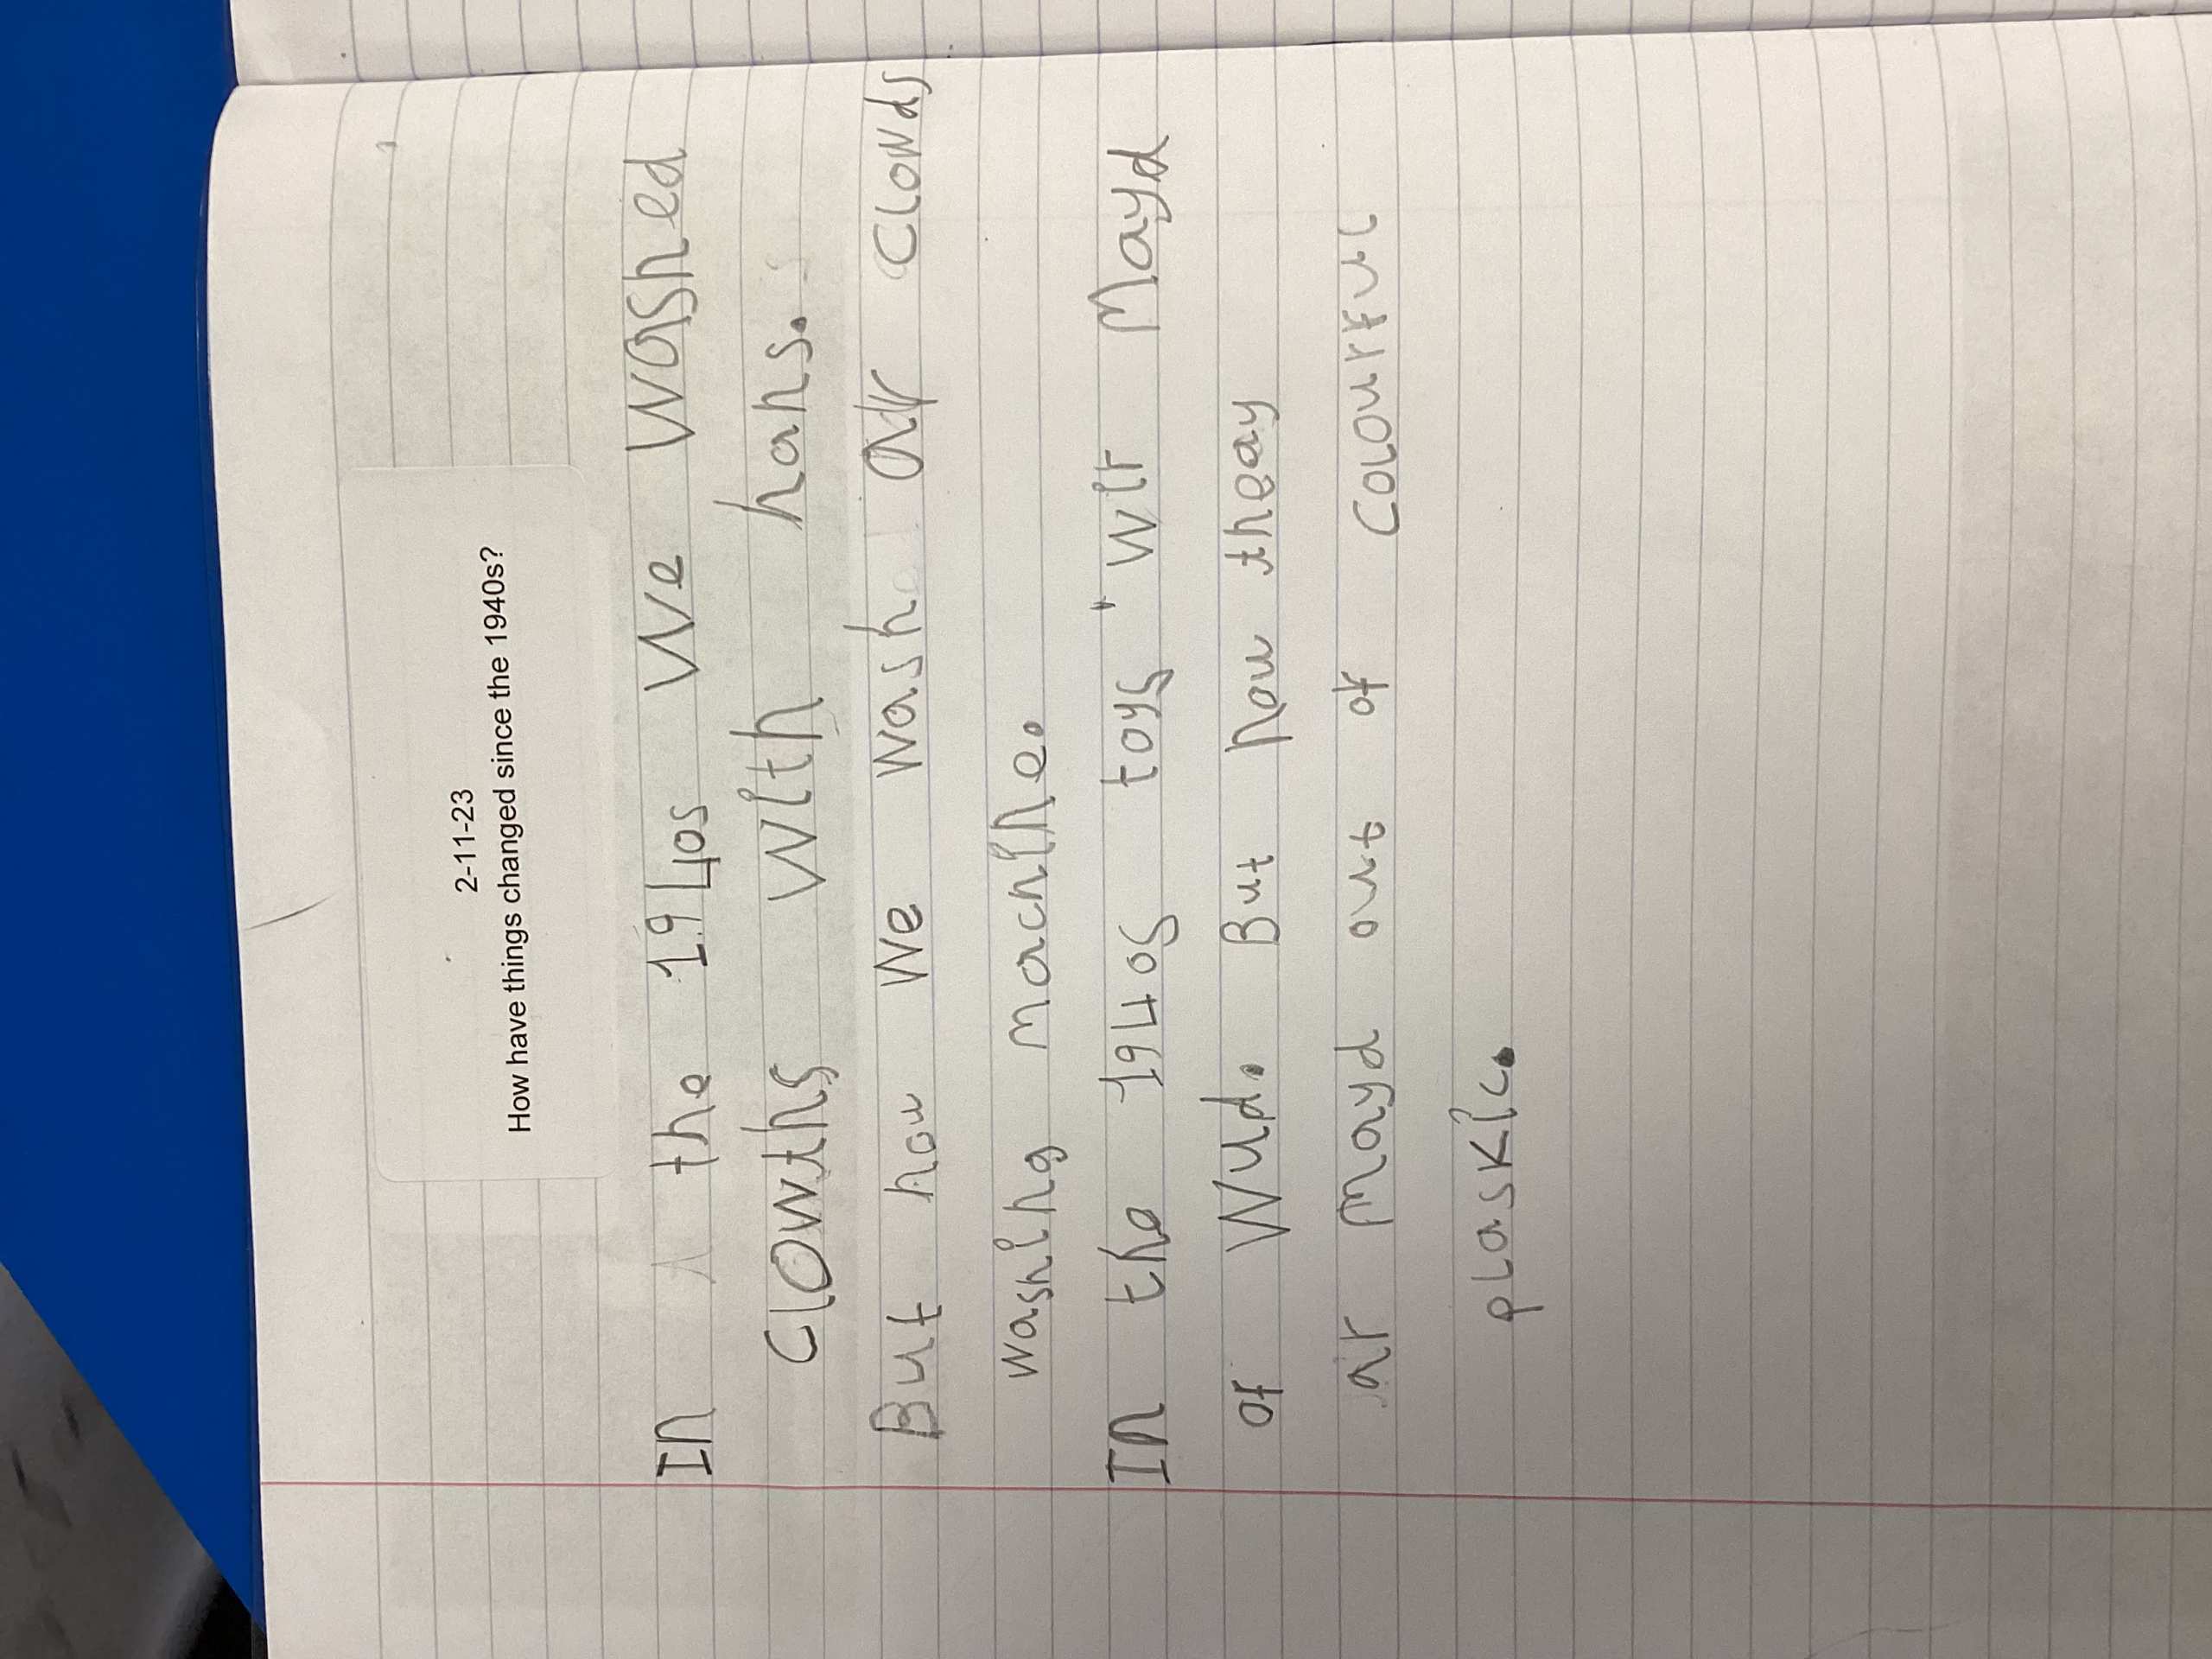 2-11-23
How have things changed since the 1940s?
In the 1940s we washed
clowths with hans.
But now we wash our clowds
washing machine.
In the 1940s toys wir mayd
of wud. But now theay
air mayd out of colourful
plaskic.